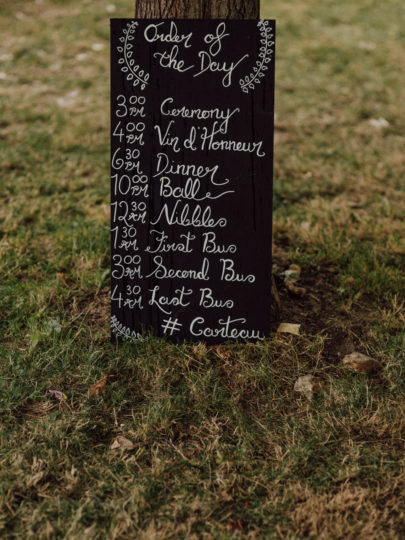 Order of
the Day
3 00 PM Ceremony
4 00 PM Vin d'Honneur
6 30 PM Dinner
10 00 PM Balle
12 30 AM Nibbles
1 30 AM First Bus
3 00 AM Second Bus
4 30 AM Last Bus
# Carteau